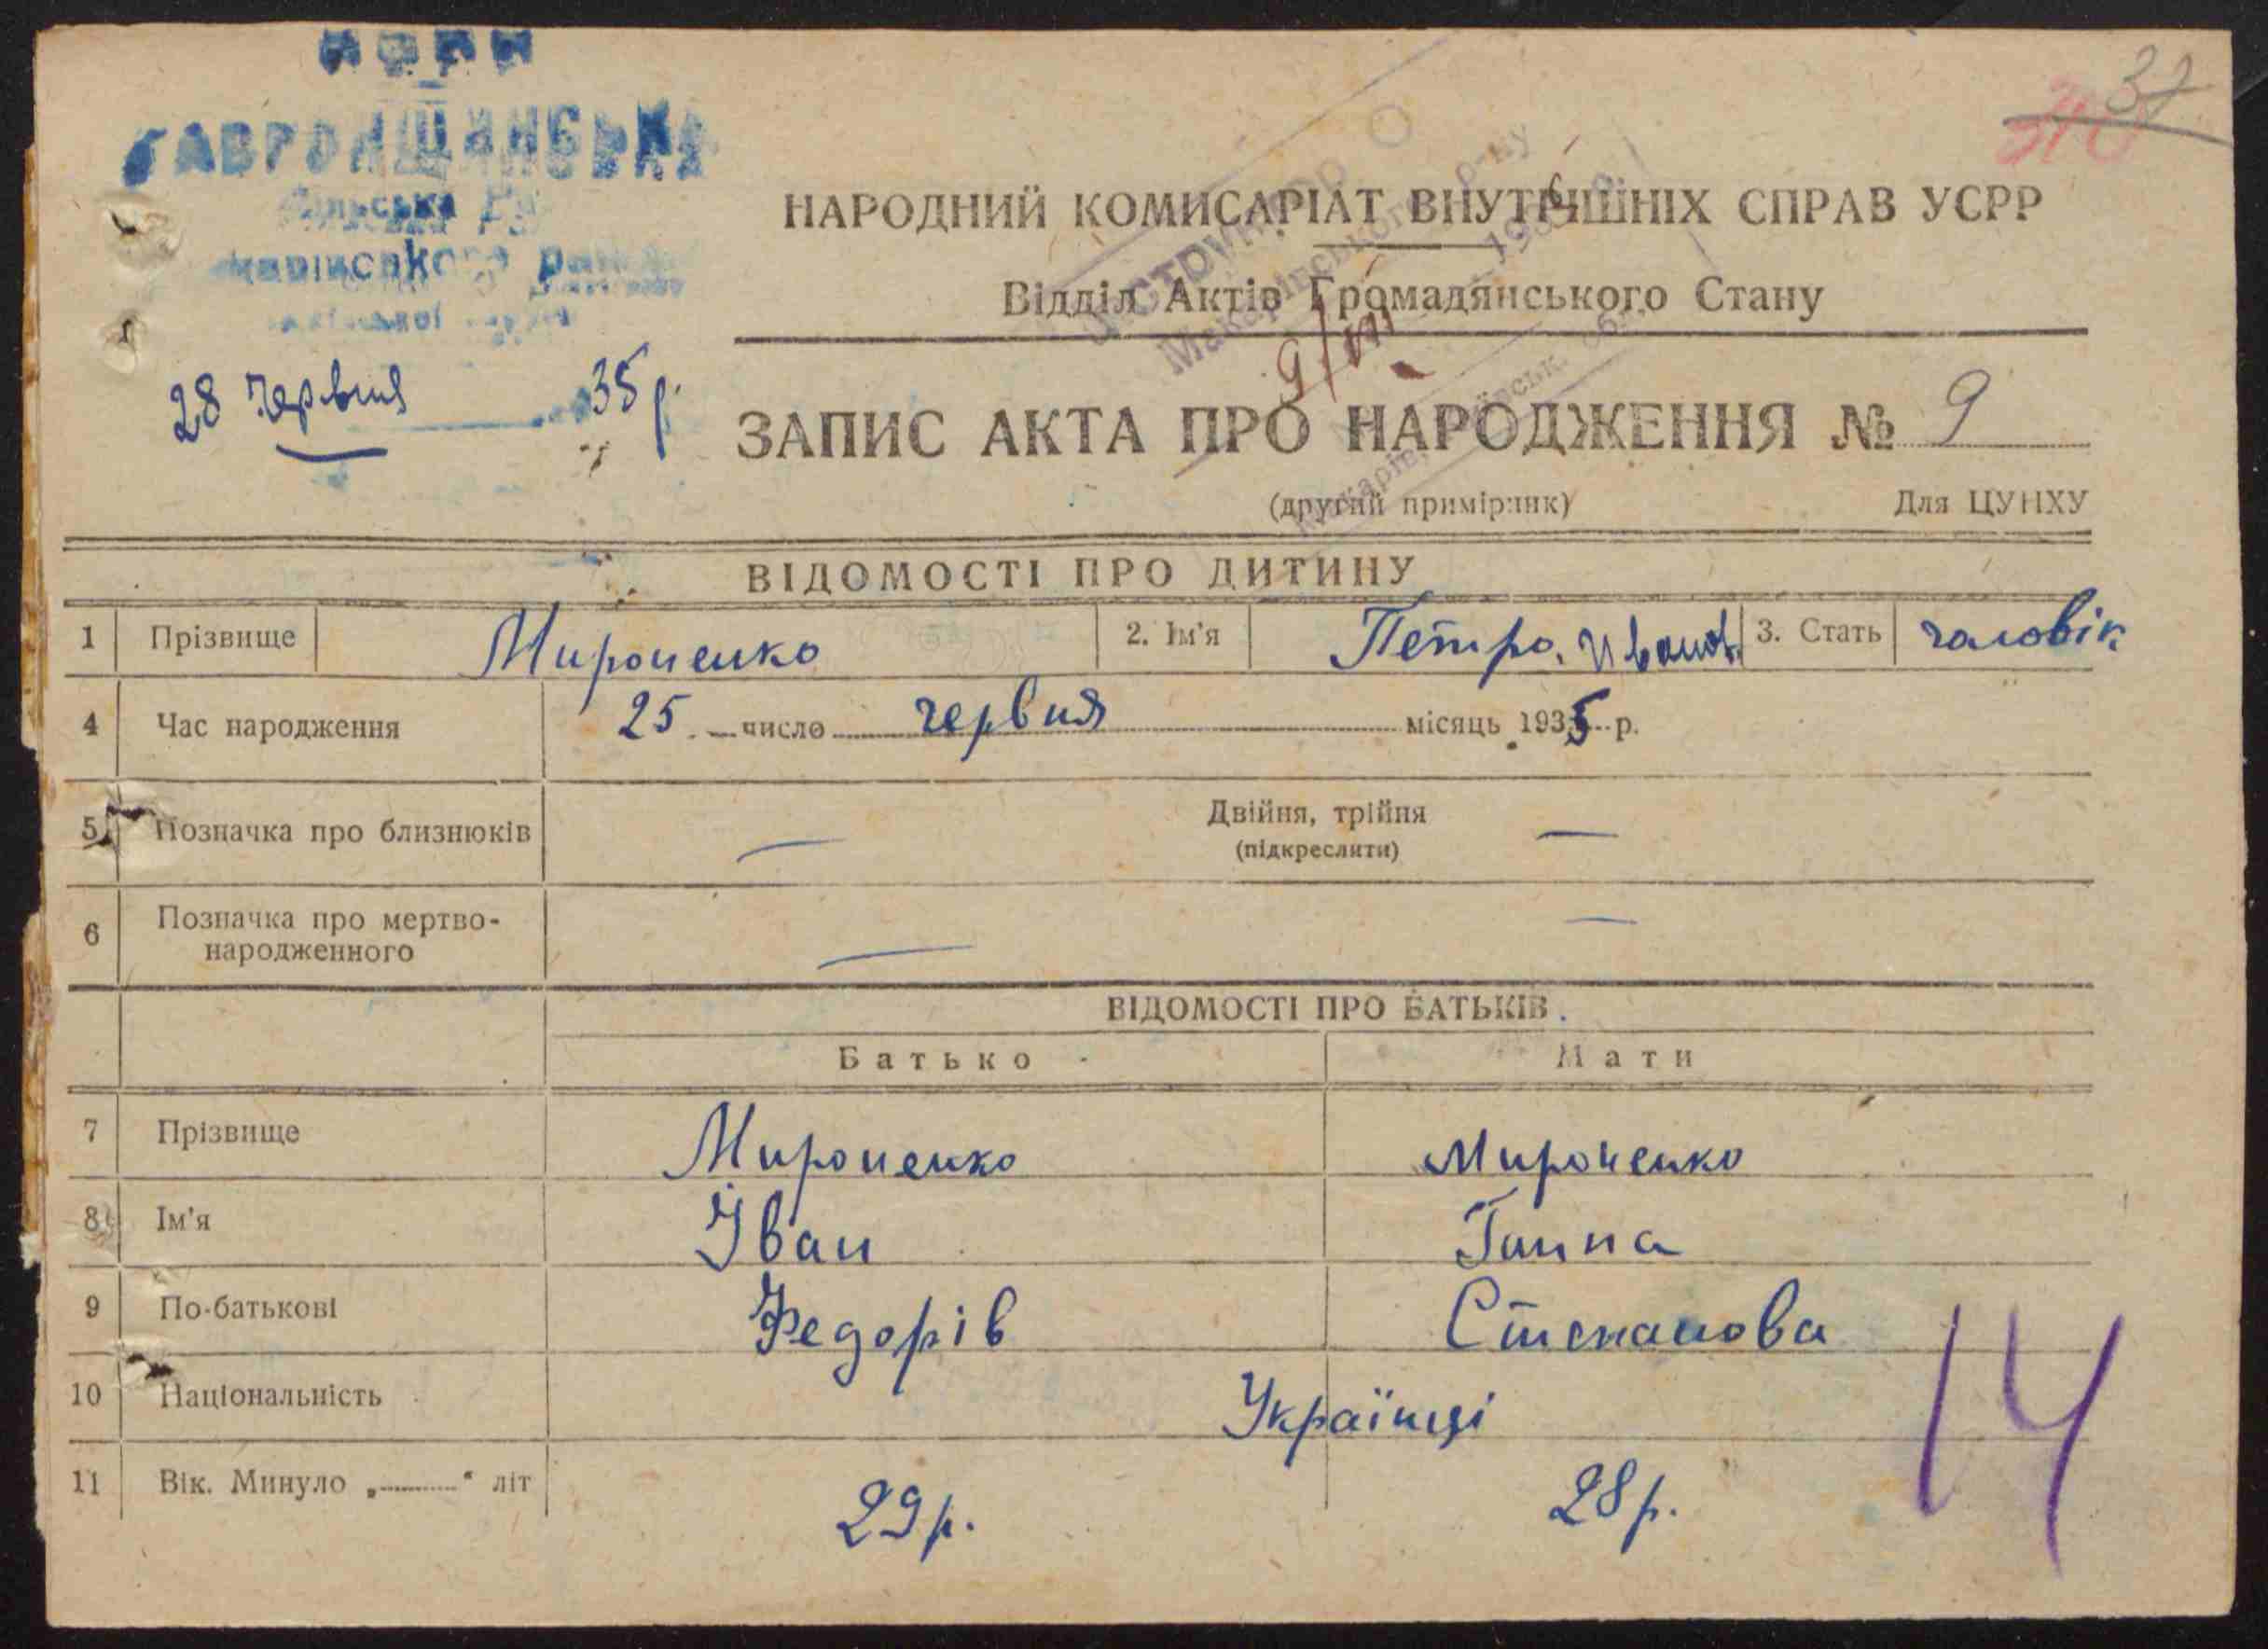 УСРР
ГАВРОНЩАНСЬКА
Сільська Ра
28 червня 35 р.
37
НАРОДНИЙ КОМИСАРІАТ ВНУТРІШНІХ СПРАВ УСРР
Відділ Актів Громадянського Стану
9/VII
ЗАПИС АКТА ПРО НАРОДЖЕННЯ № 9
(другий примірник) Для ЦУНХУ
ВІДОМОСТІ ПРО ДИТИНУ
1 Прізвище Мироненко 2. Ім'я Петро. Иванов. 3. Стать чаловік
4 Час народження 25 число червня місяць 1935 р.
5 Позначка про близнюків — Двійня, трійня —
(підкреслити)
6 Позначка про мертво- —
народженного —
ВІДОМОСТІ ПРО БАТЬКІВ
Батько Мати
7 Прізвище Мироненко Мироненко
8 Ім'я Іван Ганна
9 По-батькові Федорів Степанова
10 Національність Українці
11 Вік. Минуло „ “ літ 29 р. 28 р.
14